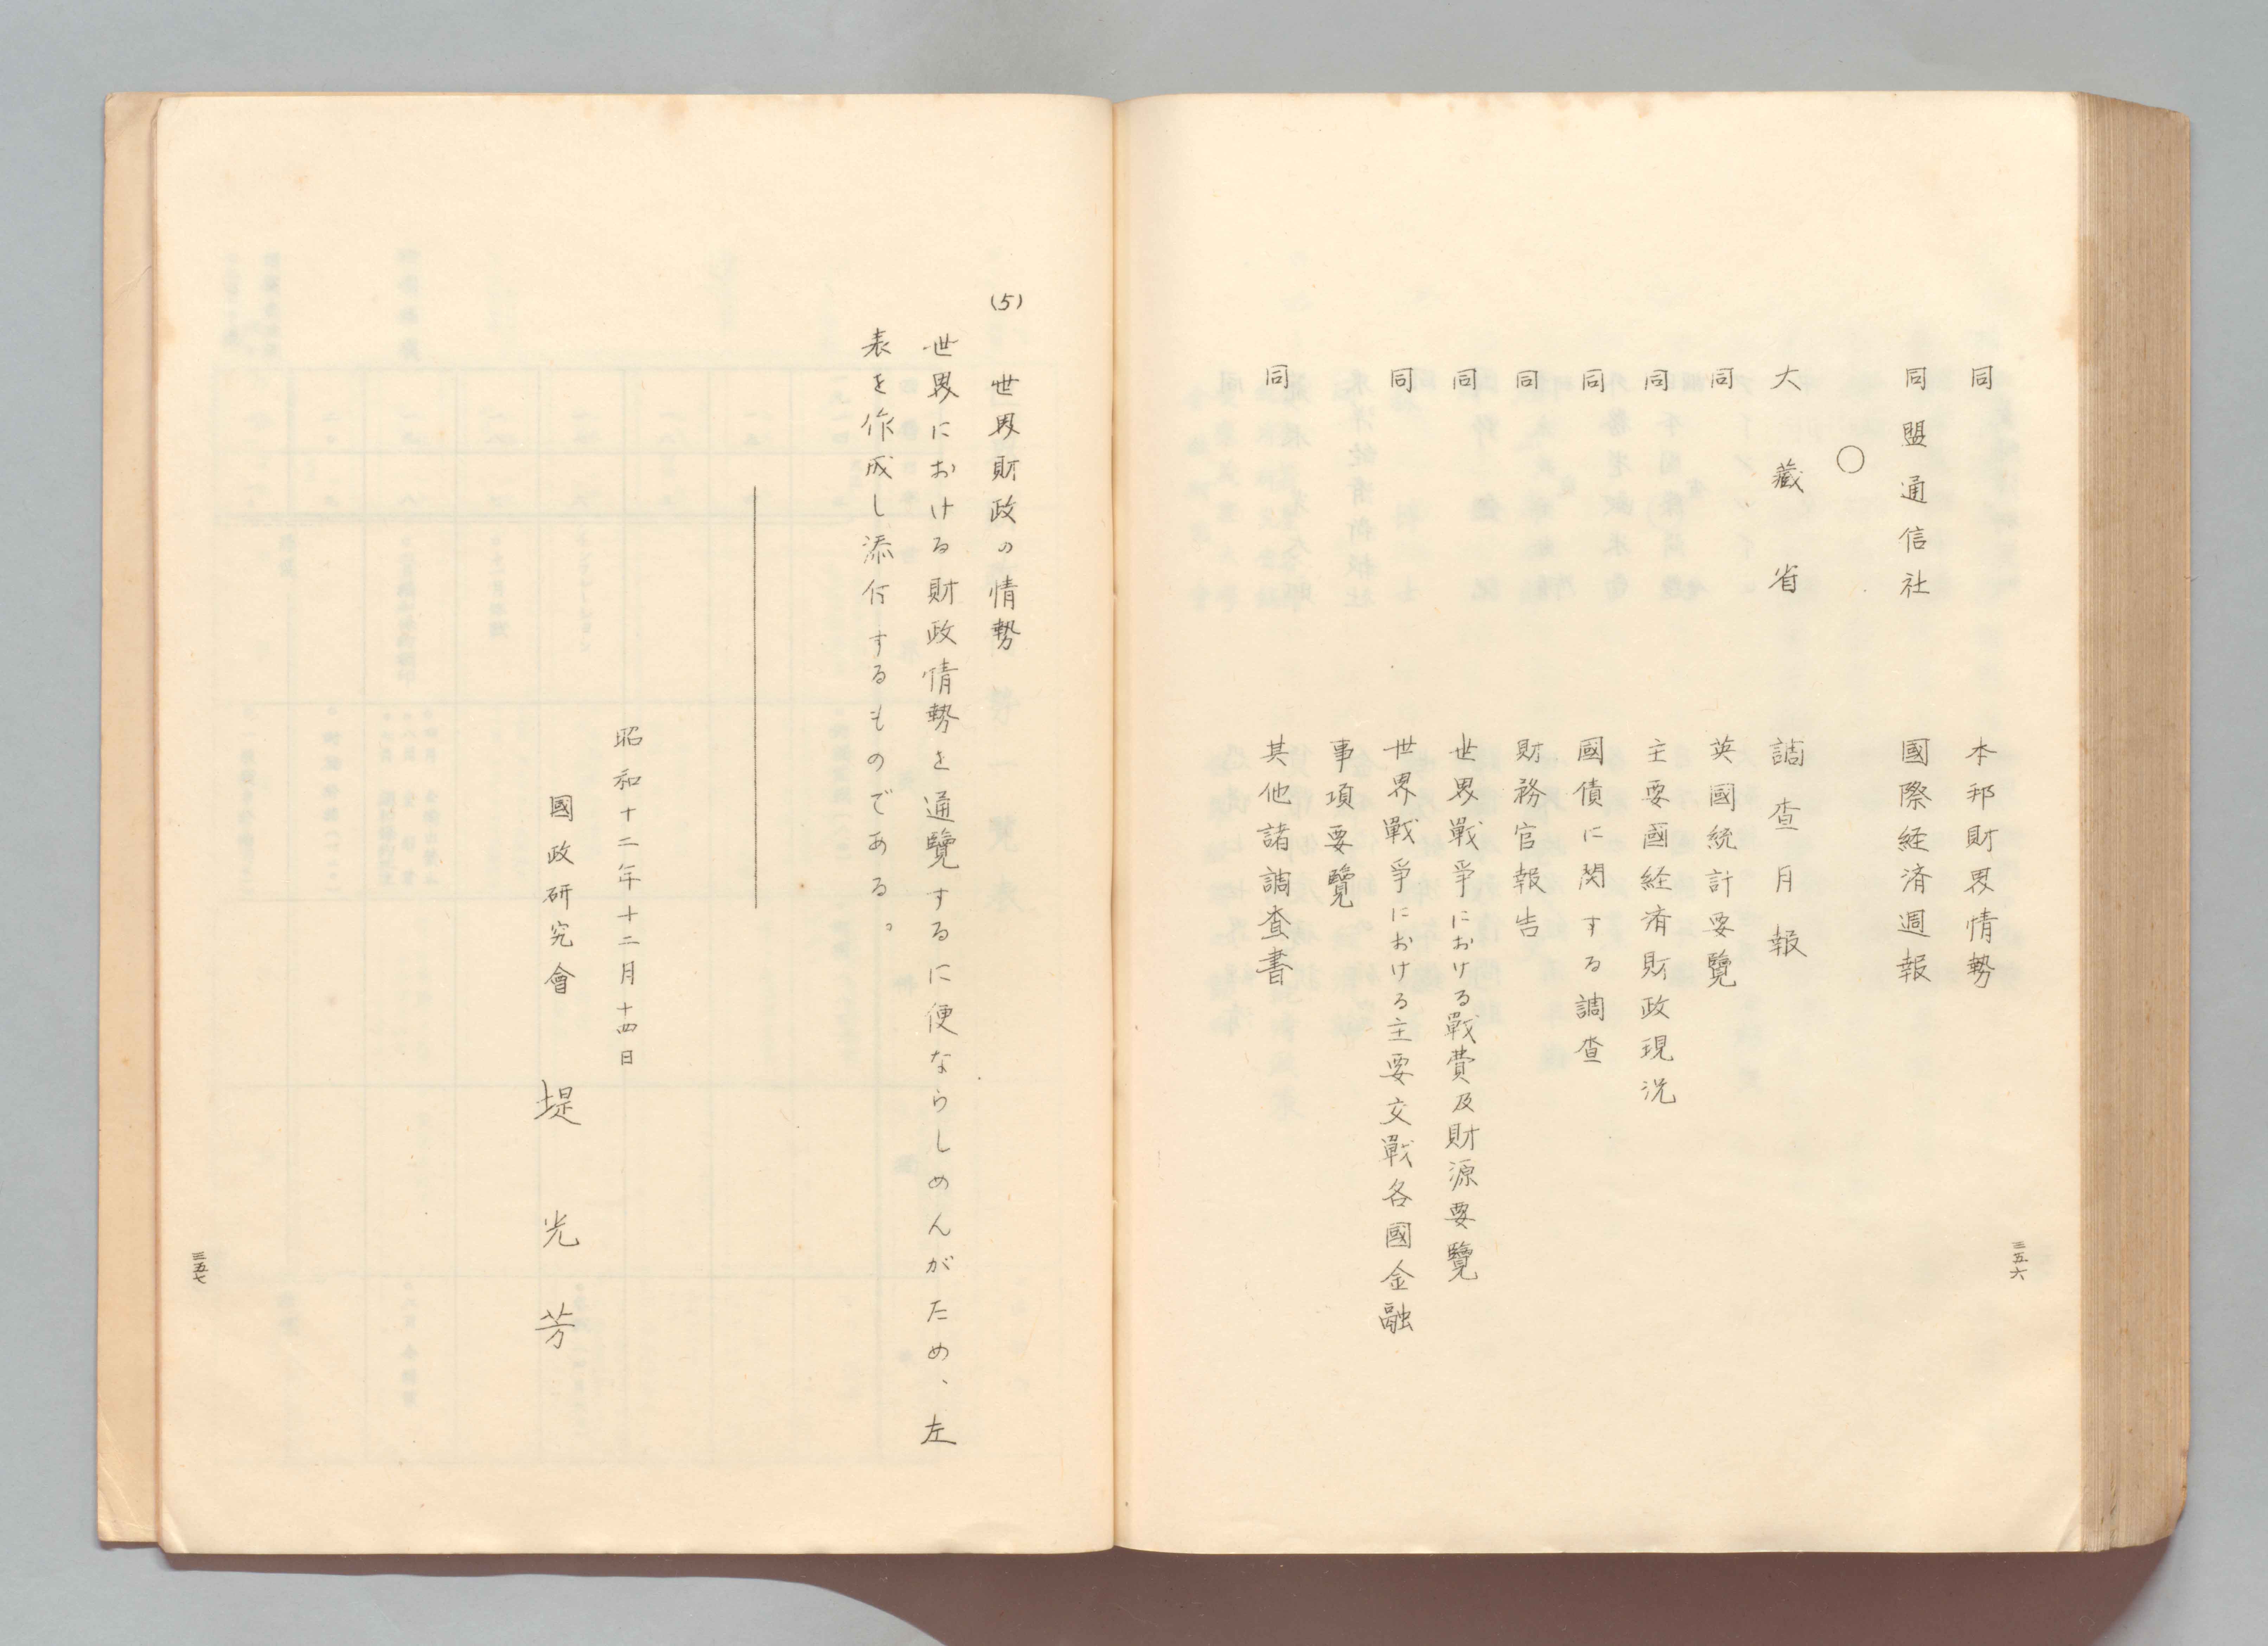 同 本邦財界情勢
同盟通信社 國際経済週報
○
大藏省 調査月報
同 英國統計要覽
同 主要國経済財政現況
同 國債に関する調査
同 財務官報告
同 世界戰爭における戰費及財源要覽
同 世界戰爭における主要交戰各國金融
事項要覽
同 其他諸調査書
三五六
(5) 世界財政の情勢
世界における財政情勢を通覽するに便ならしめんがため、左
表を作成し添付するものである。
昭和十二年十二月十四日
國政研究會 堤光芳
三五七